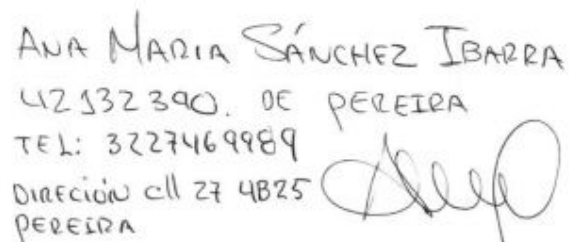 ANA MARIA SÁNCHEZ IBARRA
42132390. DE PEREIRA
TEL: 3227469989
DIRECIÓN cll 27 4B25
PEREIRA